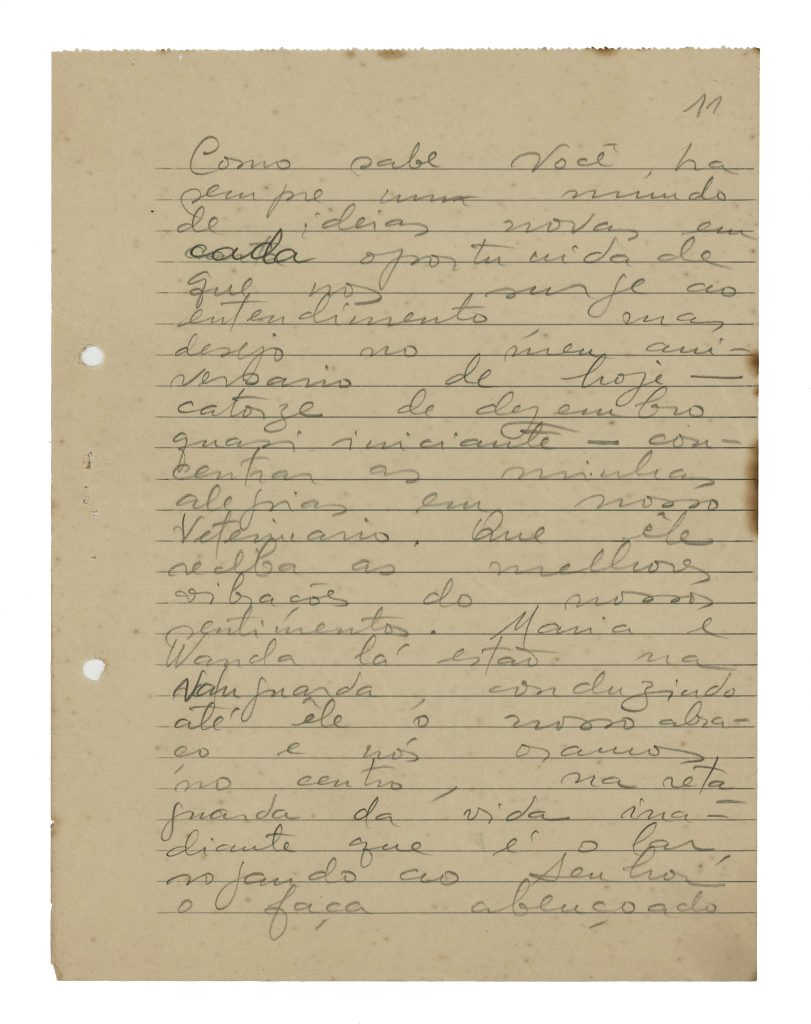 11
Como sabe Você, ha
sempre um mundo
de ideias novas em
cada oportunidade
que nos surge ao
entendimento, mas
desejo no meu ani-
versario de hoje —
catorze de dezembro
quasi iniciante — con-
centrar as minhas
alegrias em nosso
Veterinario. Que êle
receba as melhores
vibrações do nossos
sentimentos. Maria e
Wanda lá estão na
vanguarda, conduzindo
até êle o nosso abra-
ço e nós oramos,
no centro, na reta
guarda da vida ina-
diante que é o lar,
rogando ao Senhor
o faça abençoado